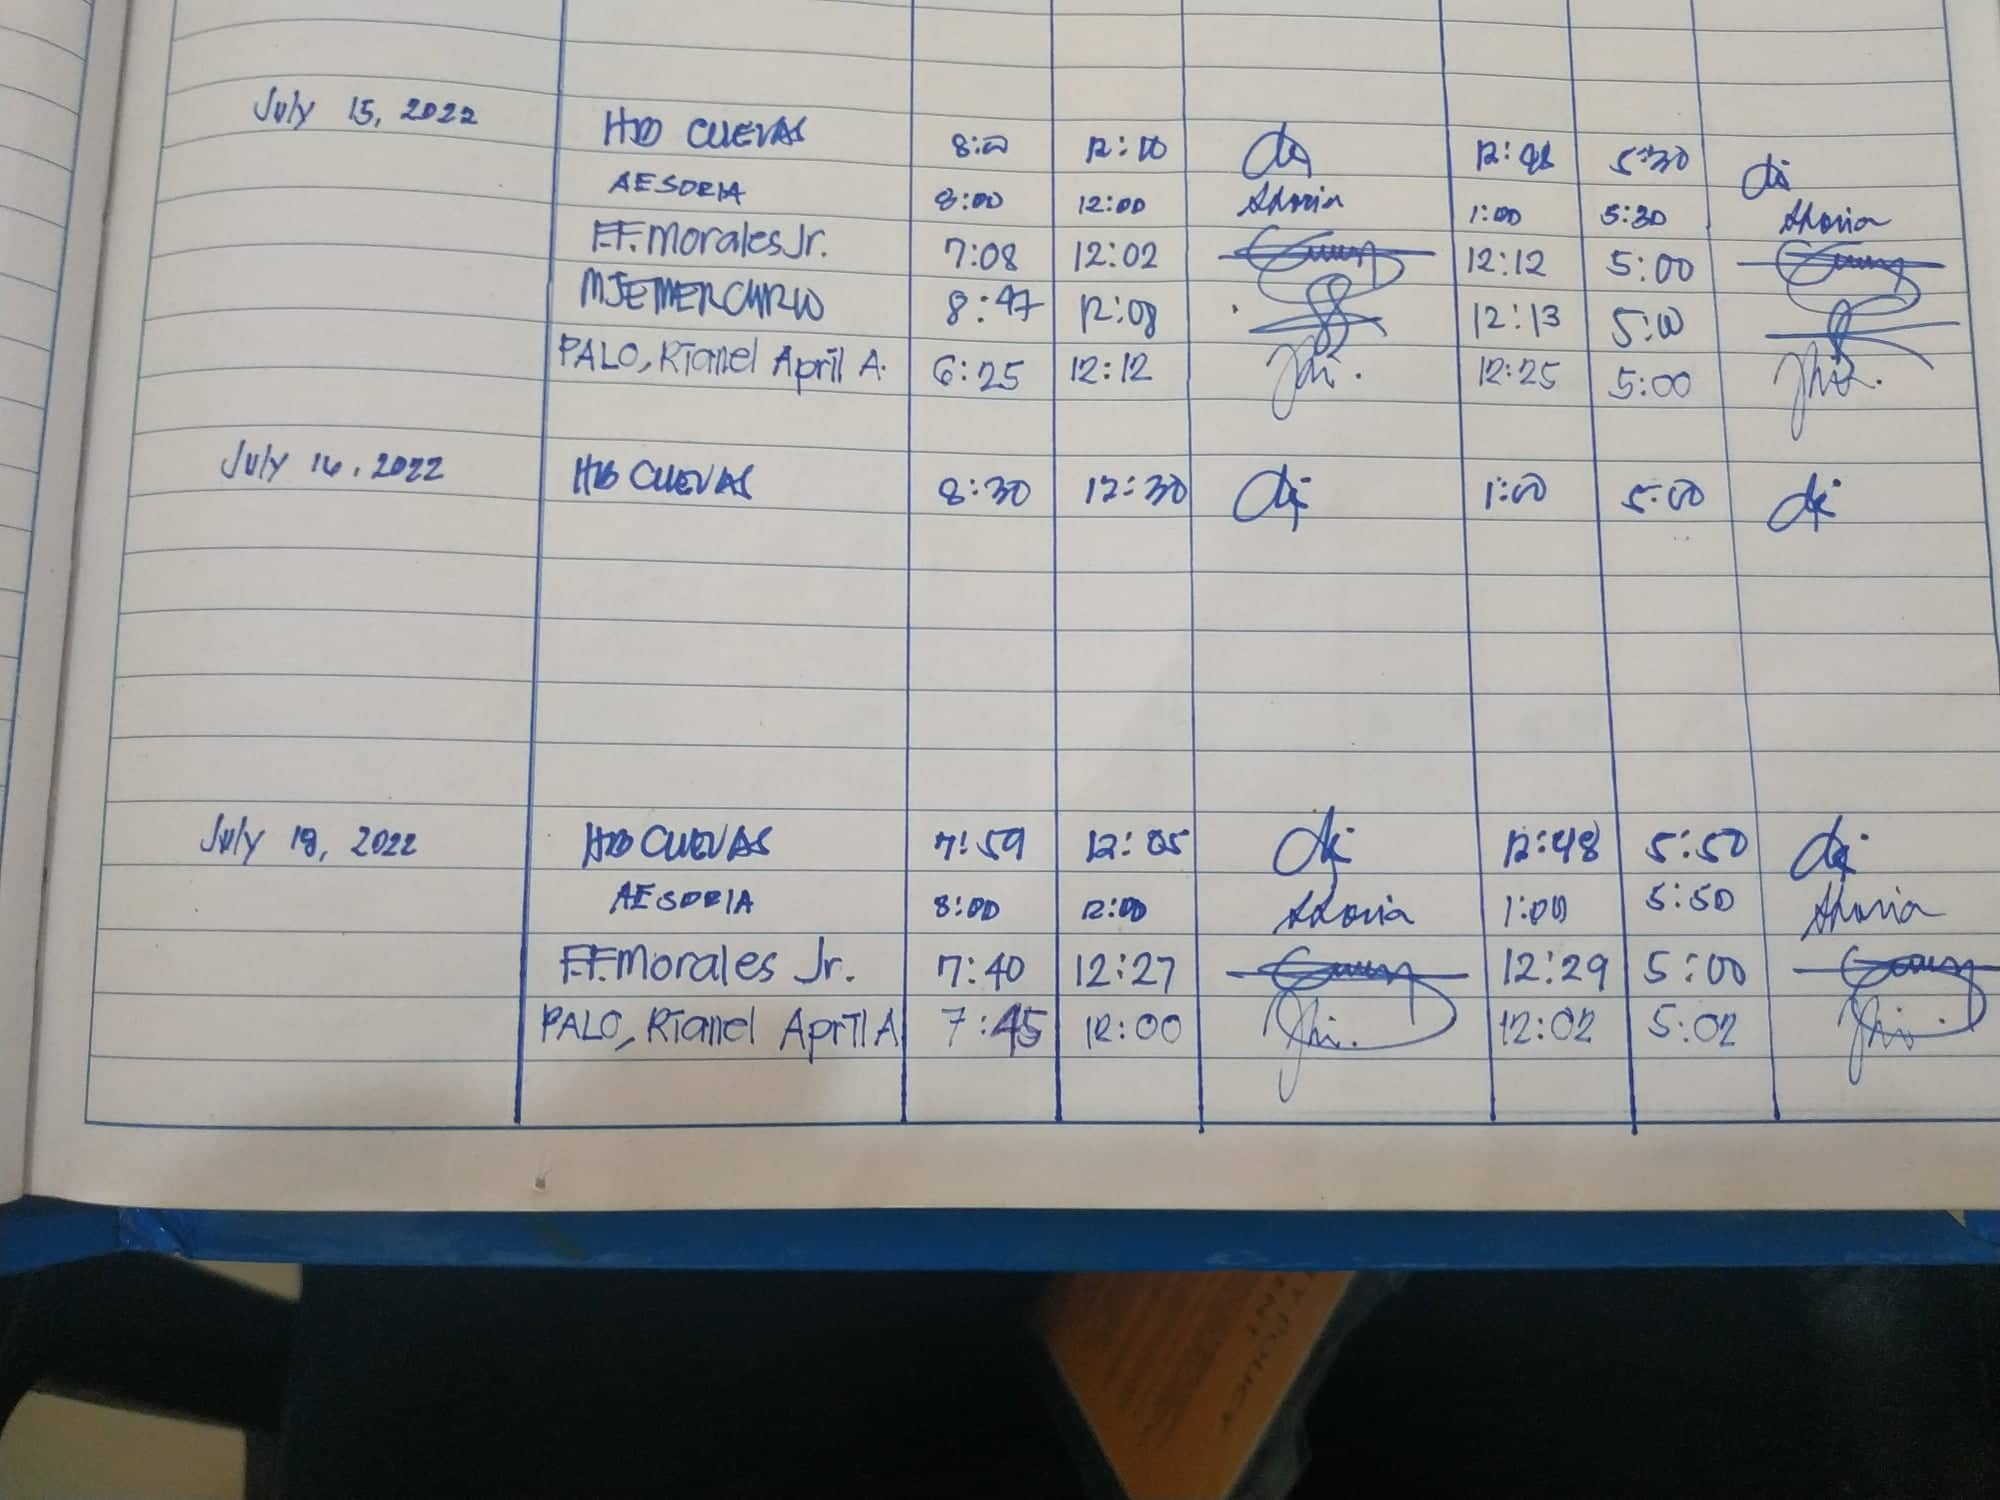 July 15, 2022 HBD CUEVAS 8:00 12:00 12:48 5:30
AESORIA 8:00 12:00 1:00 5:30
F.F. Morales Jr. 7:08 12:02 12:12 5:00
MJEMERCURIO 8:47 12:08 12:13 5:00
PALO, Rianel April A. 6:25 12:12 12:25 5:00
July 16, 2022 HBD CUEVAS 8:30 12:30 1:00 5:00
July 18, 2022 HBD CUEVAS 7:59 12:05 12:48 5:50
AESORIA 8:00 12:00 1:00 5:50
F.F. Morales Jr. 7:40 12:27 12:29 5:00
PALO, Rianel April A 7:45 12:00 12:02 5:02